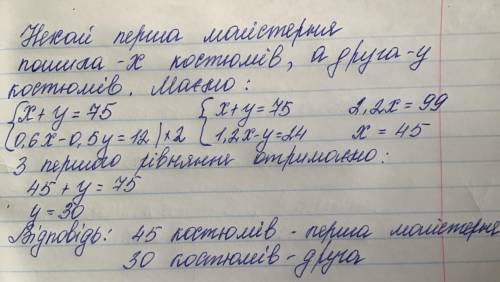 Нехай перша майстерня
пошила - x костюмів, а друга - y
костюмів. Маємо:
{x + y = 75 {x + y = 75 2,2x = 99
{0,6x - 0,5y = 12 | * 2 {1,2x - y = 24 x = 45
З першого рівняння отримаємо:
45 + y = 75
y = 30
Відповідь: 45 костюмів - перша майстерня
30 костюмів - друга